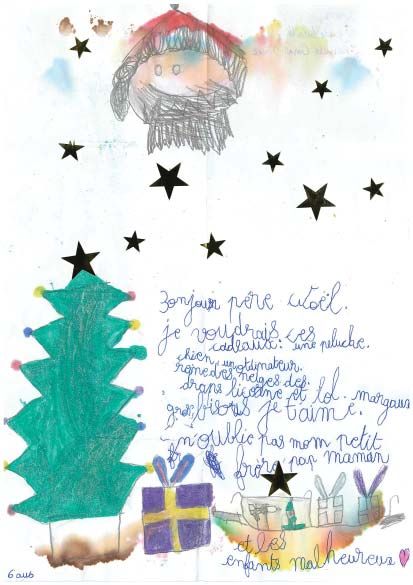 Bonjour père Noël.
je voudrais ces
cadeaux: une peluche.
chien un ordinateur.
reine des neiges des
draps licorne et lol. margaux
gros bisous je t'aime.
n'oublie pas mon petit
frère pap maman
et les
enfants malheureux
6 ans